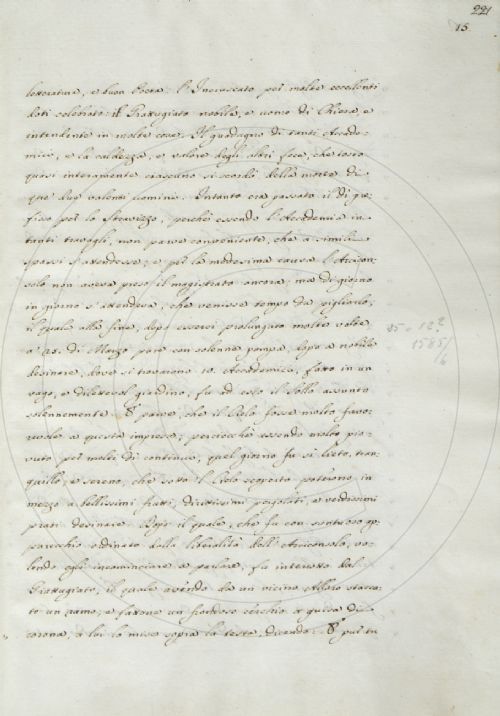 221
15
letteratura, e buon Poeta: l'Incruscato per molte eccellenti
doti celebrato: il Grattugiato nobile, e uomo di Chiesa, e
intendente in molte cose. Il guadagno di tanti Accade-
mici, e la caldezza, e valore degli altri fece, che tosto
quasi interamente ciascuno si scordò della morte di
que' due valenti uomini. Intanto era passato il dì pre-
fisso per lo Stravizzo, perchè essendo l'Accademia in
tanti travagli, non parve conveniente, che a simili
spassi s'attendesse; e per la medesima causa l'Arcicon-
solo non aveva preso il magistrato ancora; ma di giorno
in giorno s'attendeva, che venisse tempo da pigliarlo,
il quale alla fine, dopo essersi prolungato molte volte,
a' 25. di Marzo pure con solenne pompa, dopo a nobile
desinare, dove si trovarono 10. Accademici, fatto in un
vago, e dilettevol giardino, fu ad esso il Sollo assunto
solennemente. E parve, che il Cielo fosse molto favo-
revole a questa impresa; perciocchè essendo molto pio-
vuto per molti dì continui, quel giorno fu sì lieto, tran-
quillo, e sereno, che sotto il Cielo scoperto poterono in
mezzo a bellissimi frutti dirittissimi pergolati, e verdissimi
prati desinare. Dopo il quale, che fu con sontuoso ap-
parecchio ordinato dalla liberalità dell'Arciconsolo, vo-
lendo egli incominciare a parlare, fu interrotto dal
Grattugiato, il quale avendo da un vicino Alloro stacca-
to un ramo, e fattone un fronzoso cerchio a guisa di
corona, a lui lo mise sopra la testa, dicendo: E può tu
1585/6